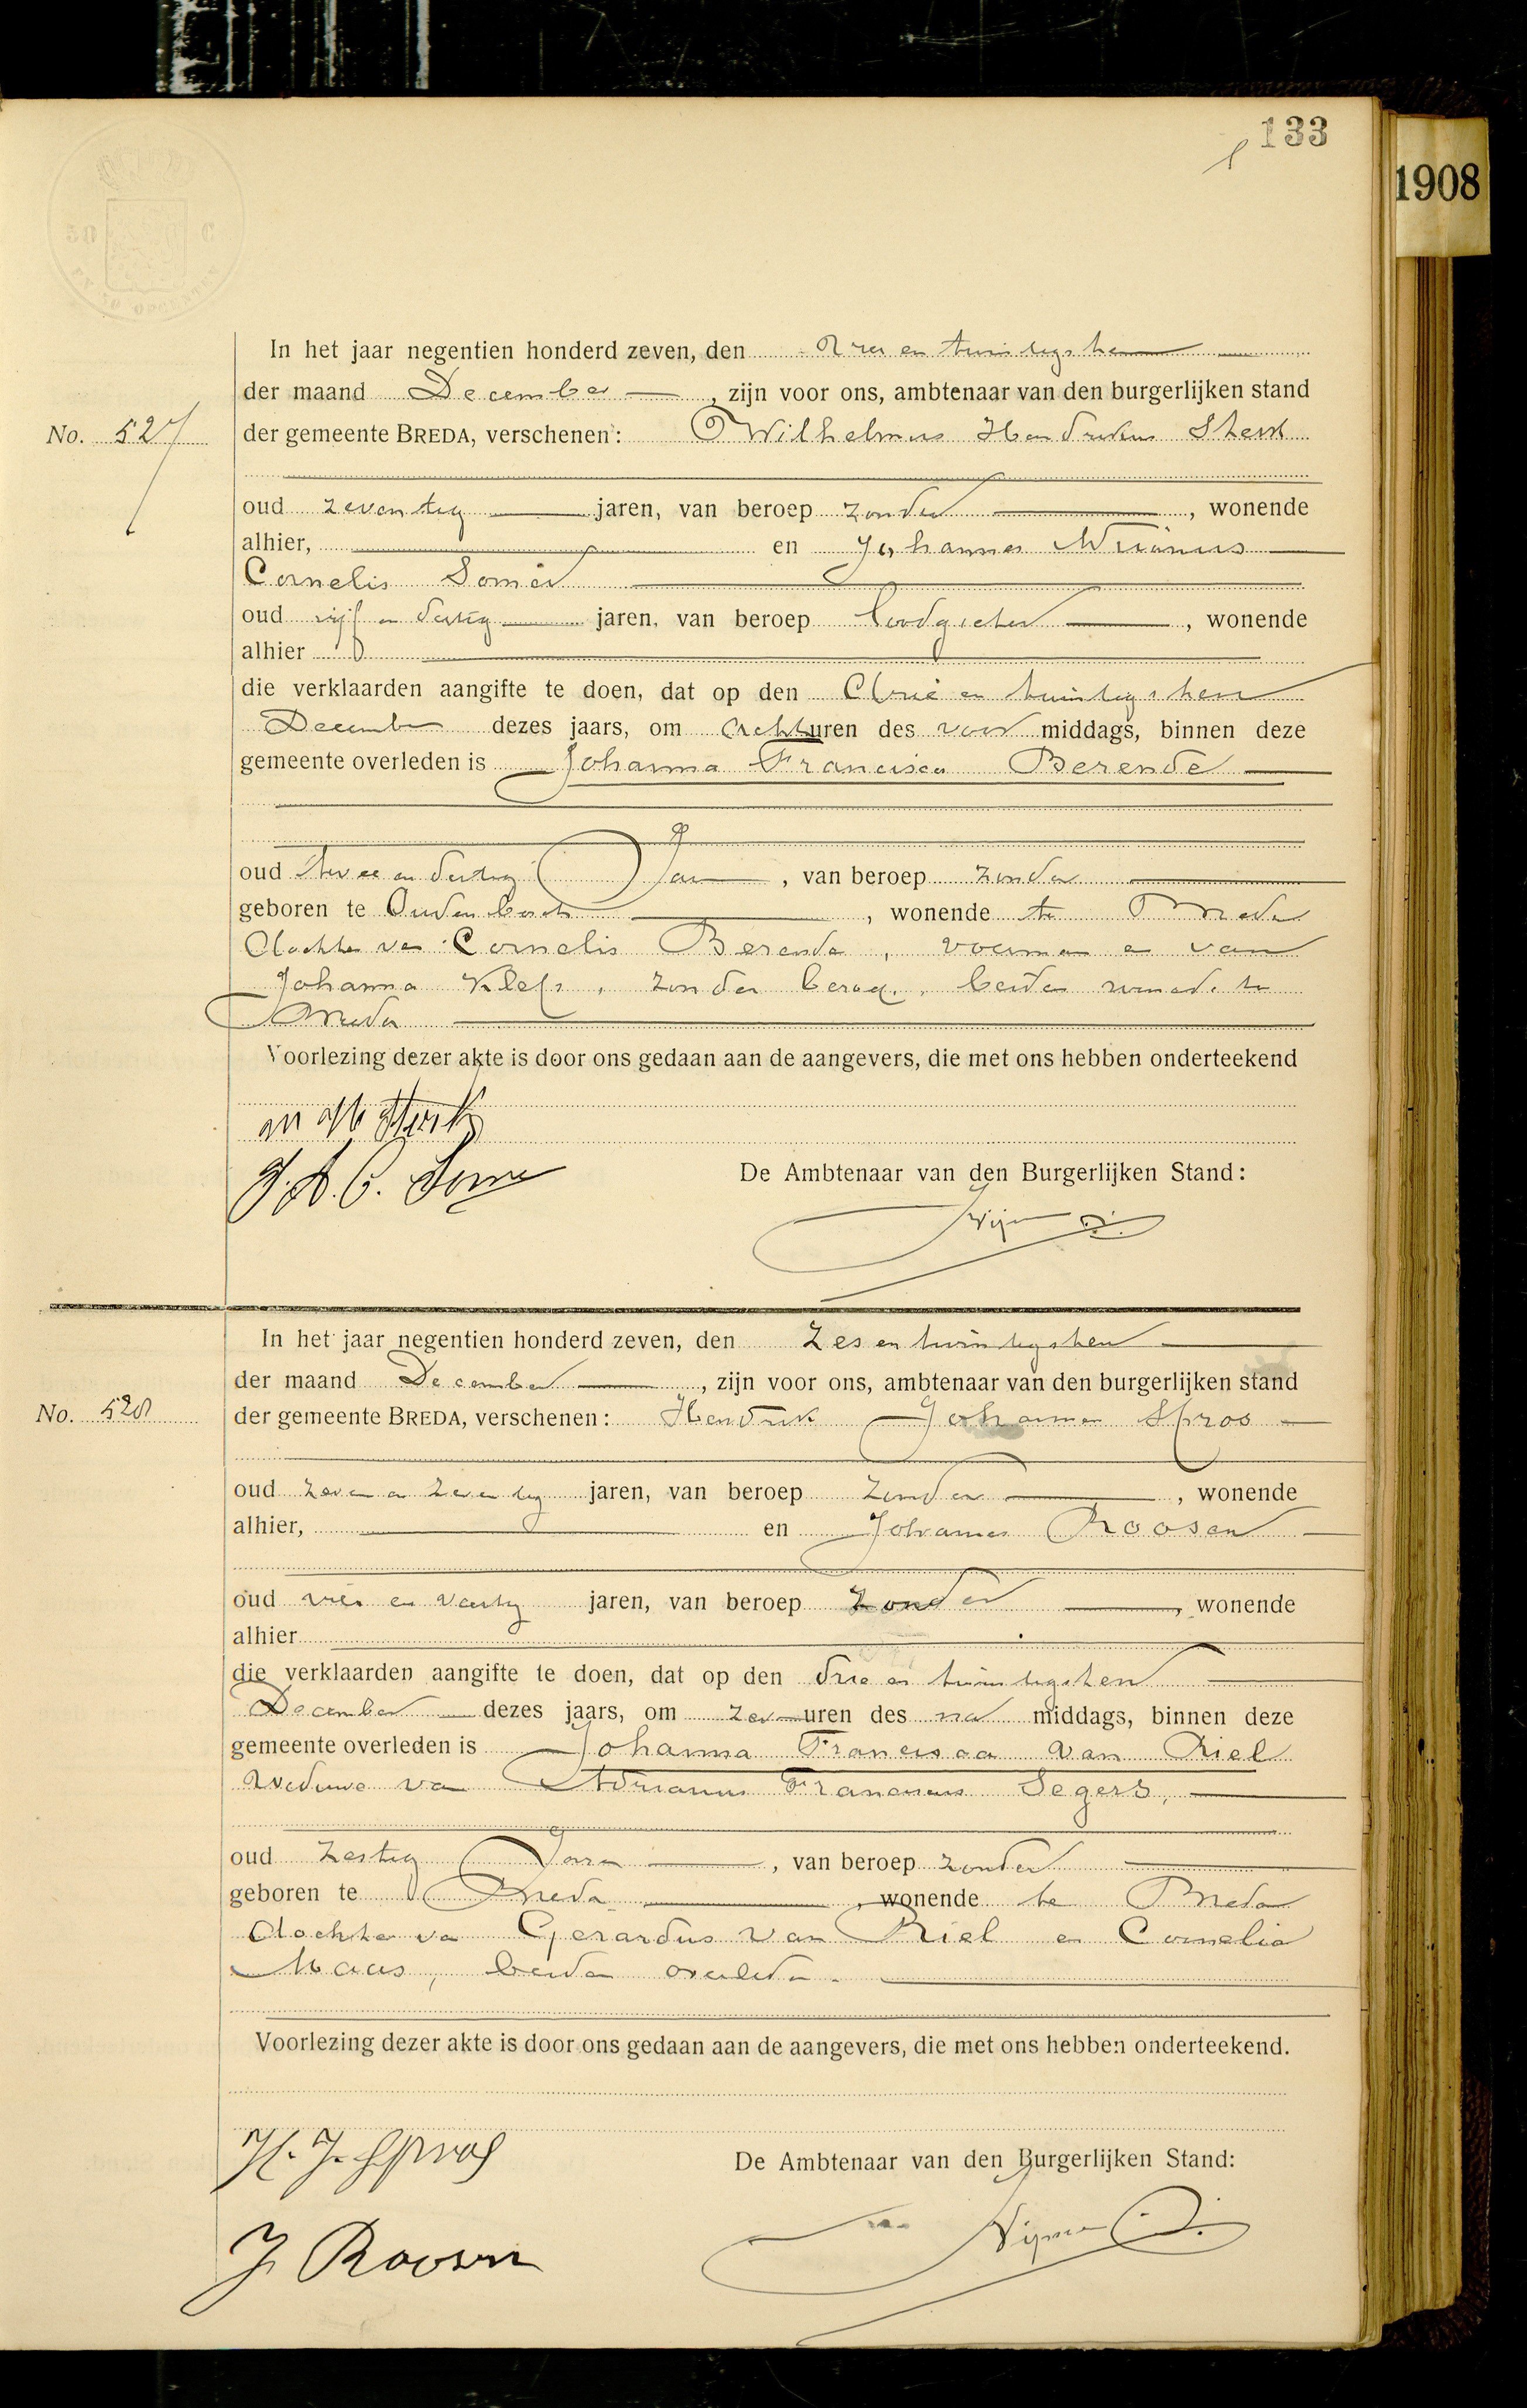 133
1908
In het jaar negentien honderd zeven, den drie en twintigsten
der maand December, zijn voor ons, ambtenaar van den burgerlijken stand
No. 527 der gemeente BREDA, verschenen: Wilhelmus Hendrikus Sterk
oud zeventig jaren, van beroep zonder, wonende
alhier, en Johannes Adrianus
Cornelis Somer
oud vijf en dertig jaren, van beroep loodgieter, wonende
alhier
die verklaarden aangifte te doen, dat op den drie en twintigsten
December dezes jaars, om acht uren des voor middags, binnen deze
gemeente overleden is Johanna Francisca Berende
oud twee en dertig jaar, van beroep zonder
geboren te Oudenbosch, wonende te Breda
dochter van Cornelis Berende, voerman en van
Johanna Klep, zonder beroep, beiden wonende te
Breda
Voorlezing dezer akte is door ons gedaan aan de aangevers, die met ons hebben onderteekend
W H Sterk
J. A. C. Somer
De Ambtenaar van den Burgerlijken Stand:
In het jaar negentien honderd zeven, den zes en twintigsten
der maand December, zijn voor ons, ambtenaar van den burgerlijken stand
No. 528 der gemeente BREDA, verschenen: Hendrik Johannes Spros
oud zeven en zeventig jaren, van beroep zonder, wonende
alhier, en Johannes Roosen
oud vier en veertig jaren, van beroep zonder, wonende
alhier
die verklaarden aangifte te doen, dat op den drie en twintigsten
December dezes jaars, om zes uren des na middags, binnen deze
gemeente overleden is Johanna Francisca van Riel
weduwe van Adrianus Franciscus Segers,
oud zestig jaren, van beroep zonder
geboren te Breda, wonende te Breda
dochter van Gerardus van Riel en Cornelia
Maas, beiden overleden.
Voorlezing dezer akte is door ons gedaan aan de aangevers, die met ons hebben onderteekend.
H. J. Spros
De Ambtenaar van den Burgerlijken Stand:
J Roosen